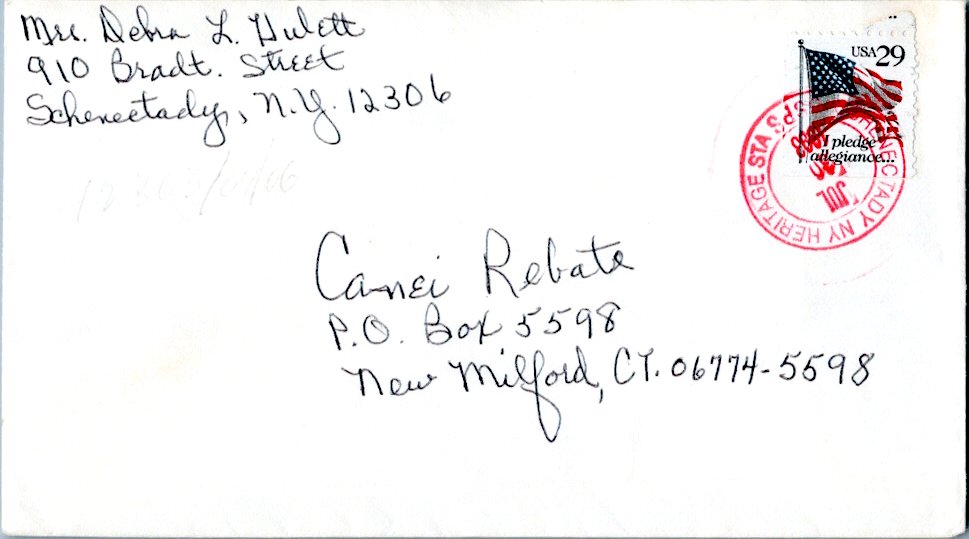 Mrs. Debra L. Hulett
910 Bradt. Street
Schenectady, N.Y. 12306
USA 29
I pledge
allegiance...
SCHENECTADY NY HERITAGE STA USPS
JUL
Canei Rebate
P.O. Box 5598
New Milford, CT. 06774-5598